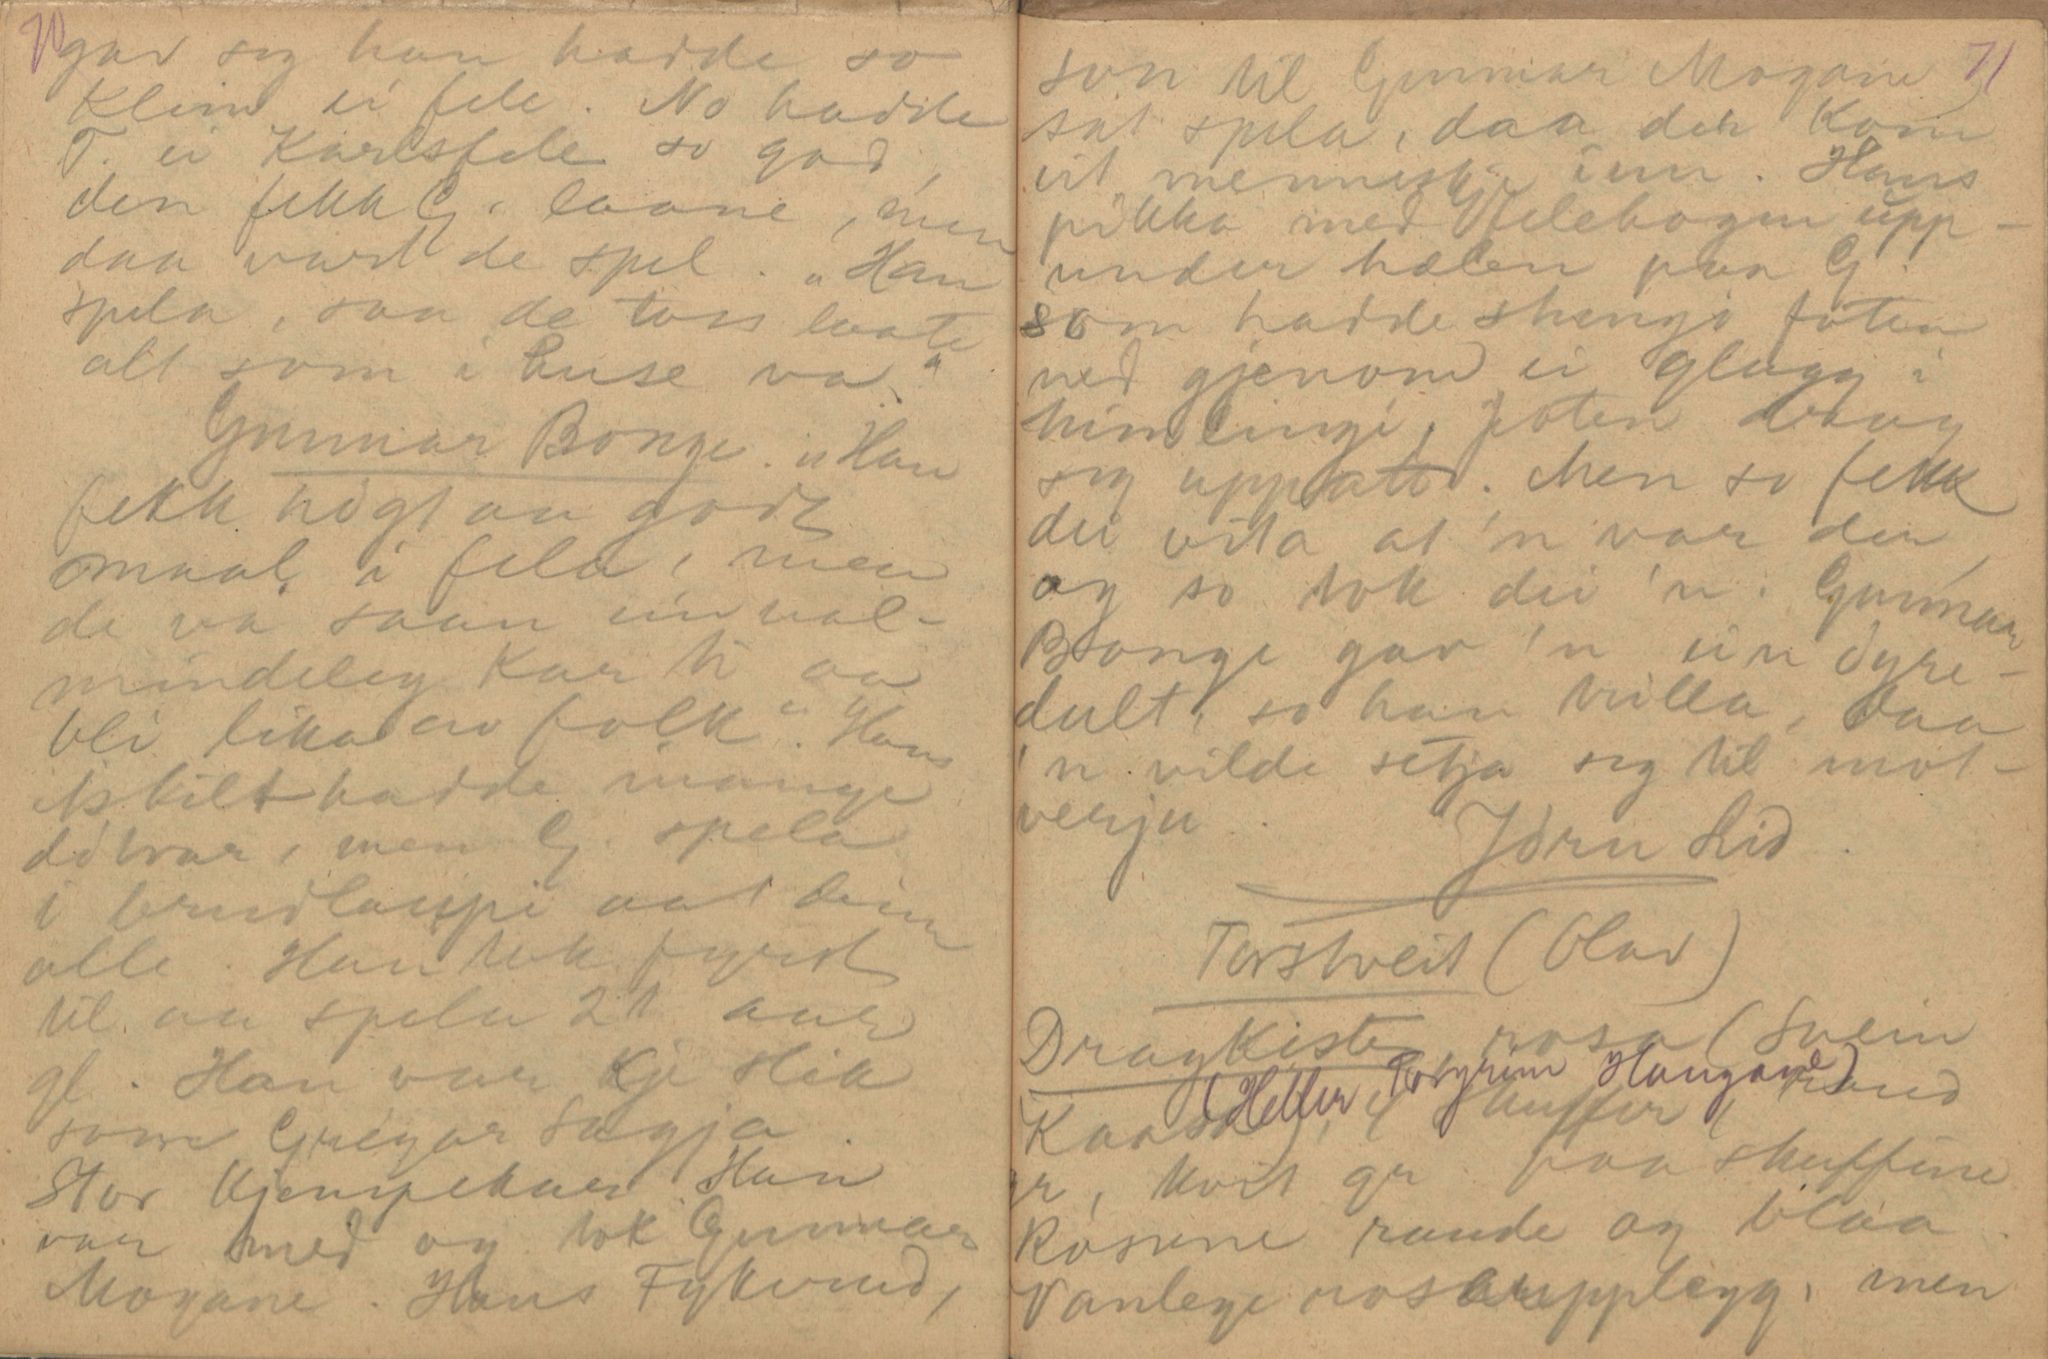 70
gav seg han hadde so
klein ei fele. No hadde
T. ei Karlsfele so god,
den fekk G. laane, men
daa vart de spel. "Han
spela, saa de tok laate
alt som i huse va."
Gunnar Bonge. "Han
fekk høgt aa godt
maal i fela, men
de va saan ein val-
mindeleg kar ti aa
bli lika av folk". Hans
Askilt hadde mange
døtrar, men G. spela
i brudlaupi aat deim
alle. Han tok fyrst
til aa spela 21 aar
gl. Han var kje slik
som Gregar Sagja.
Stor kjempekar. Han
var med og tok Gunnar
Mogane. Hans Fykerud,
71
son til Gunnar Mogane
sat spela, daa der kom
eit menneskje inn. Hans
pikka med felebogen upp-
under hælen paa G.
som hadde stengi foten
ned gjenom ei glugg i
himlingi, foten drog
seg uppatt. Men so fekk
dei vita at 'n var der
og so tok dei 'n. Gunnar
Bonge gav 'n ein dyre-
dult, so han trilla, daa
'n vilde setja seg til mot-
verju.
Jørn Lid.
Torstveit (Olav)
Dragkiste, rosa (Svein
(Heller Torgrim Haugane)
Kaasa), 4 skuffur, raud
gr, kvit gr paa skuffune
Rosune raude og blaa.
Vanlege roseupplegg, men